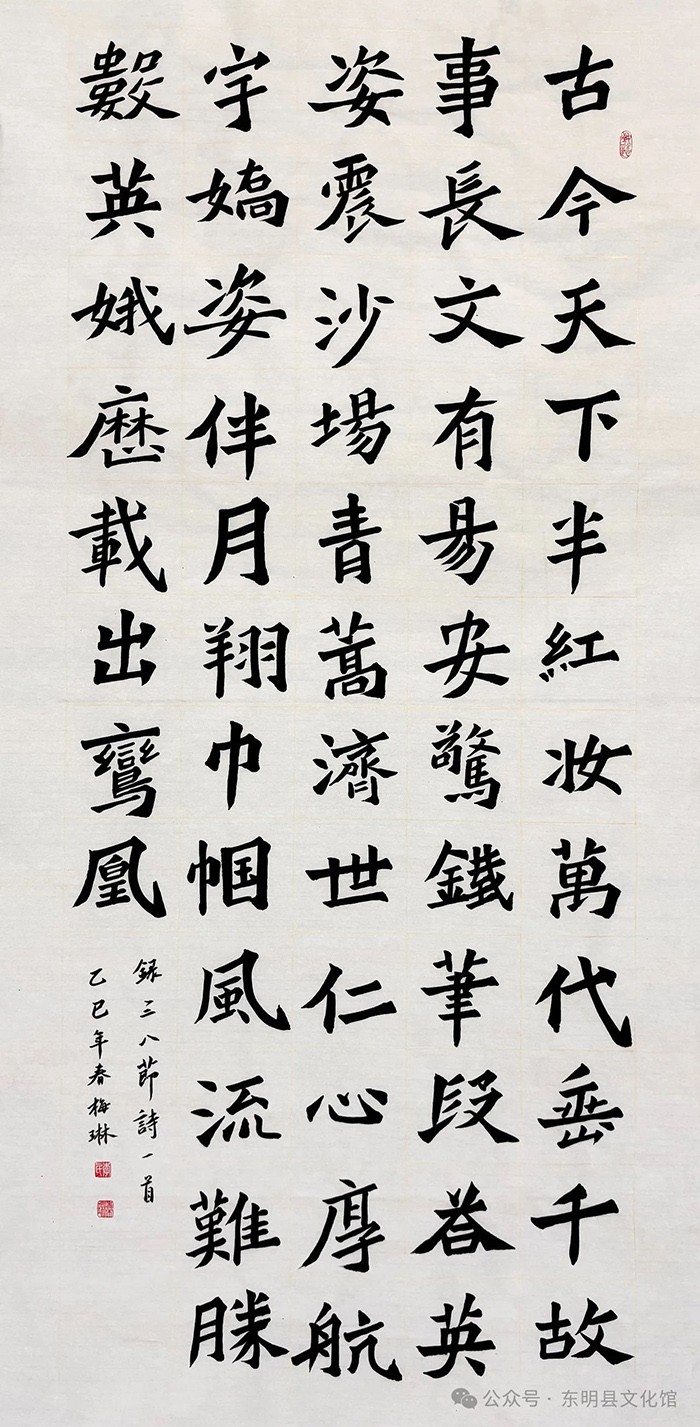 古今天下半紅妆萬代垂千故
事長文有易安驚鐵筆段英
姿震沙場青蒿濟世仁心厚航
宇嬌姿伴月翔巾帼風流難勝
數英娥歷載出鸞凰
録三八節詩一首
乙巳年春梅琳
公众号 · 东明县文化馆